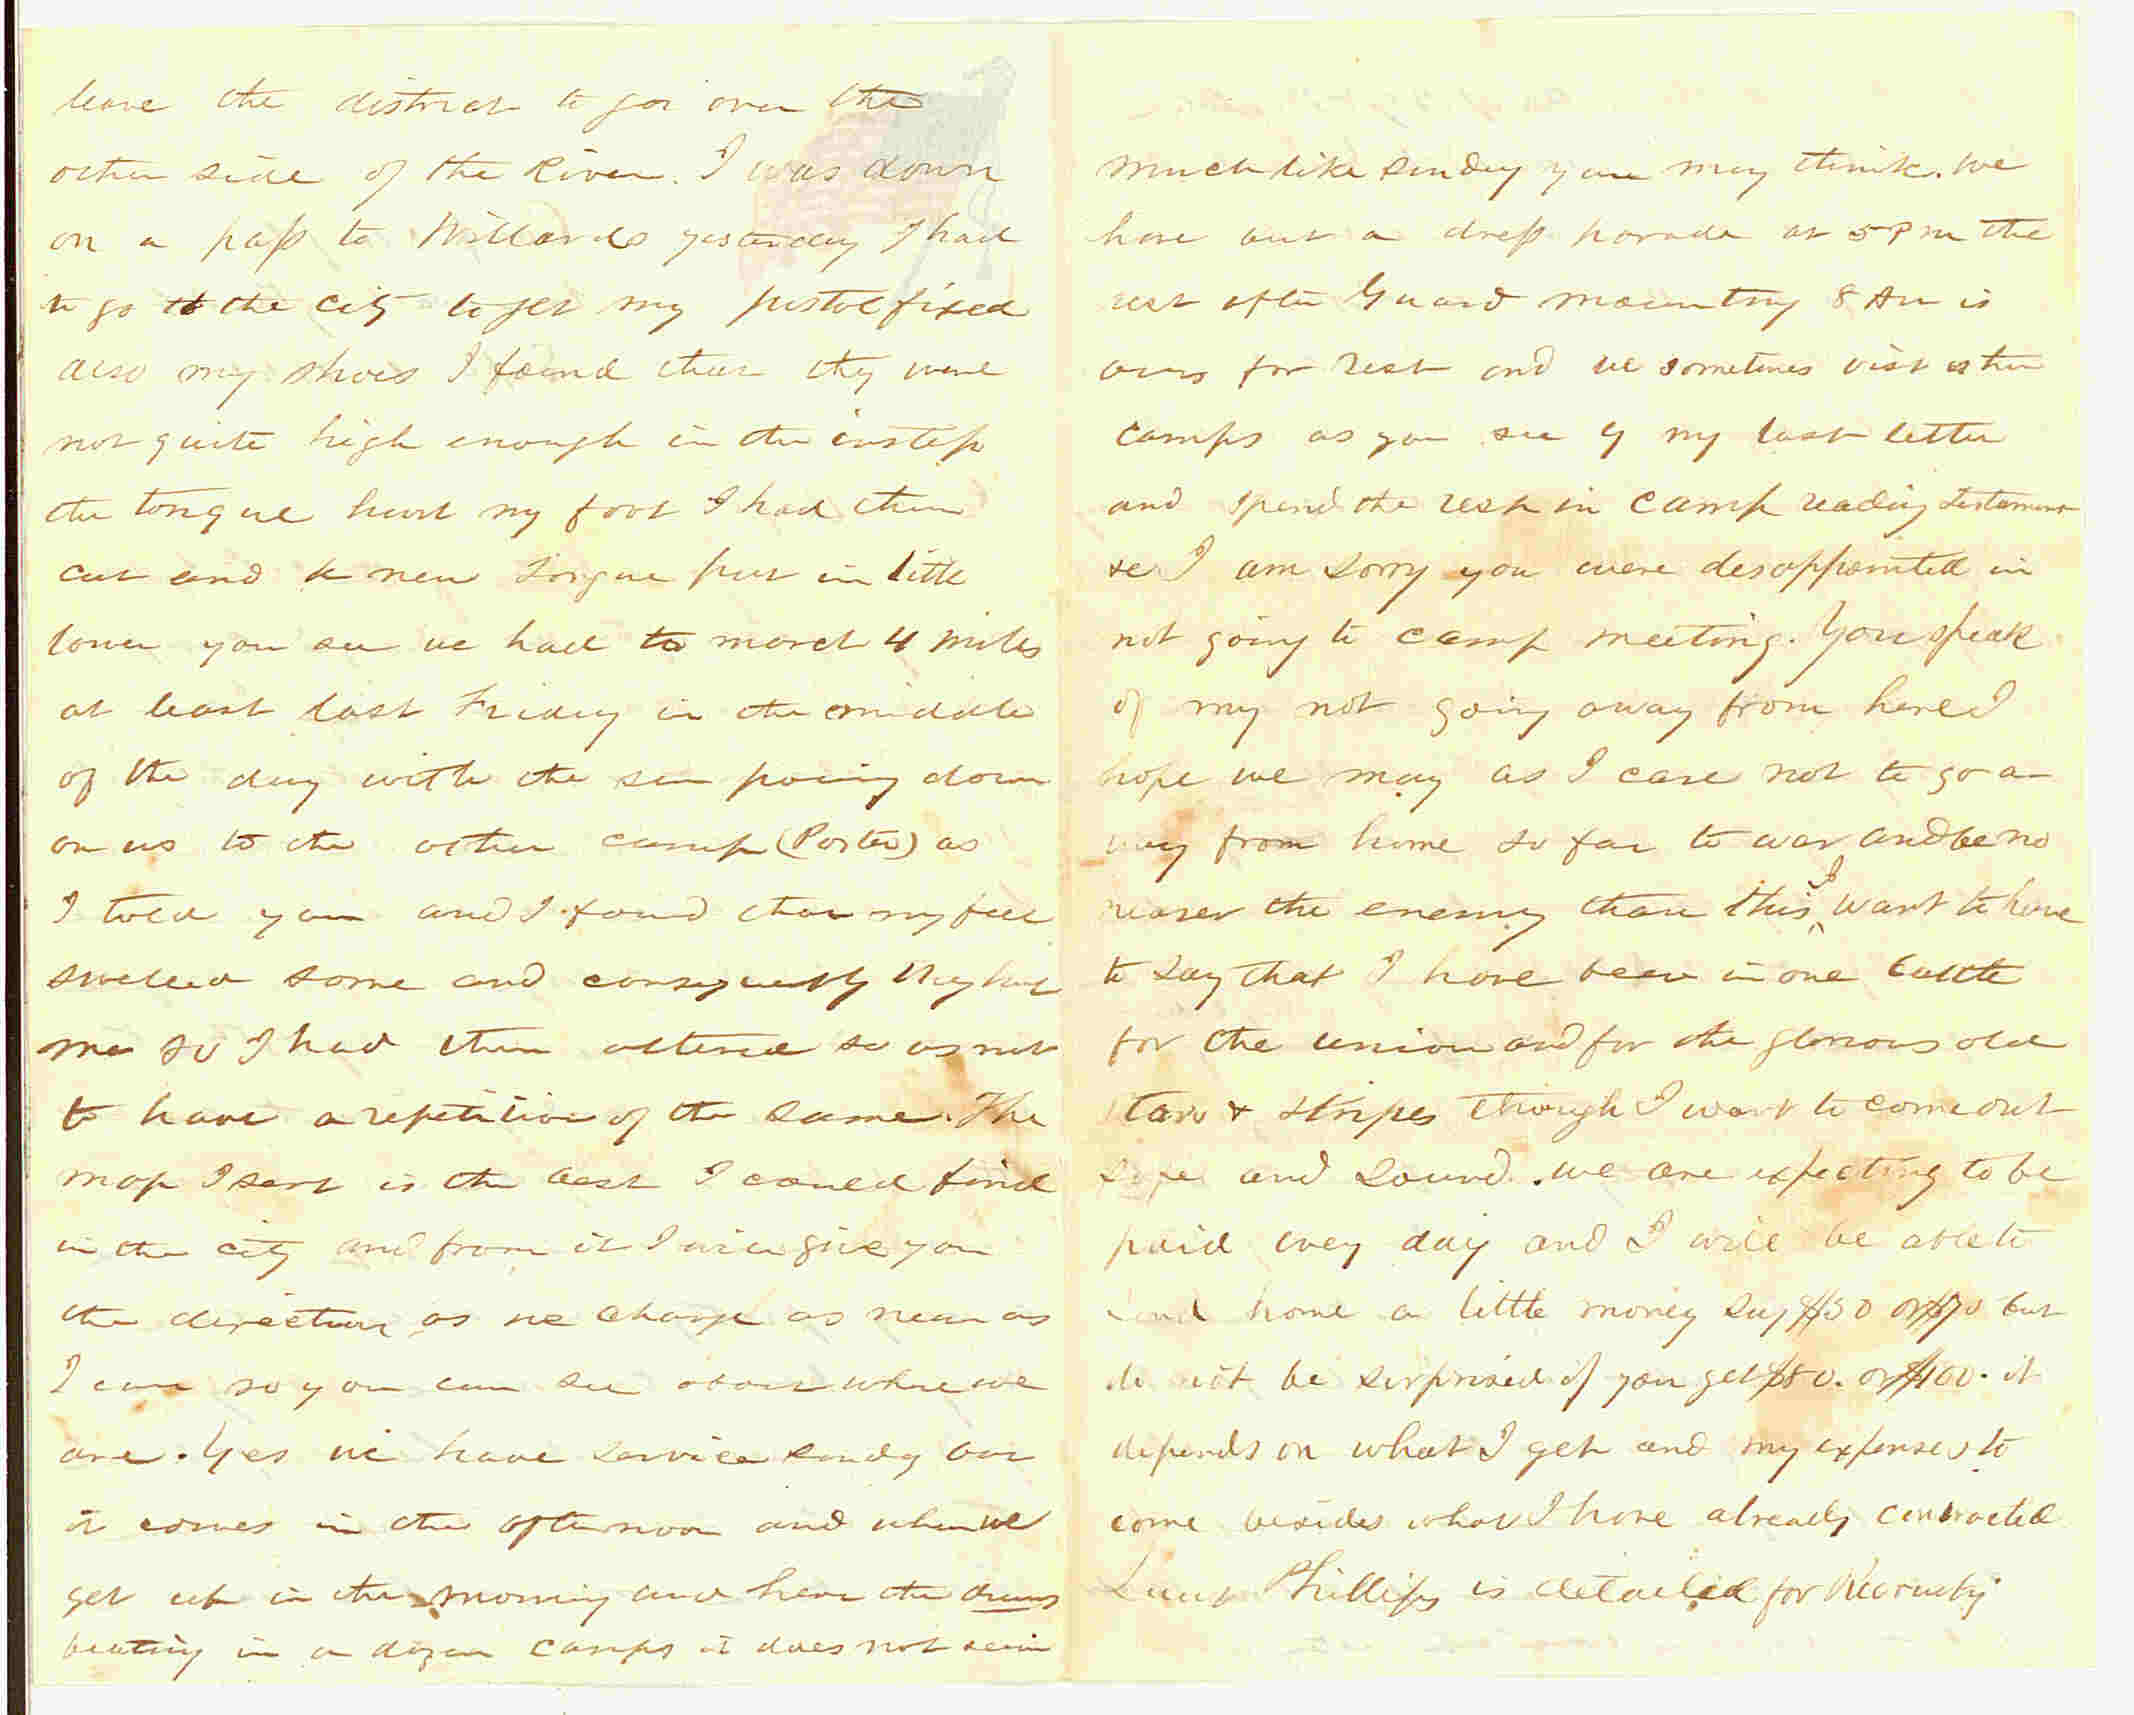 leave the district to go over the
other side of the River. I was down
on a pass to Willards yesterday I had
to go to the city to get my pistol fixed
also my shoes I found that they were
not quite high enough in the instep
the tongue hurt my foot I had them
cut and a new tongue put in little
lower you see we had to march 4 miles
at least last Friday in the middle
of the day with the sun pouring down
on us to the other camp (Porter) as
I told you and I found that my feet
swelled some and consequently they hurt
me so I had them altered so as not
to have a repetition of the same. The
map I sent is the best I could find
in the city and from it I will give you
the direction as we change as near as
I can so you can see about where we
are. Yes we have service Sunday but
it comes in the afternoon and when we
get up in the morning and hear the drums
beating in a dozen camps it does not seem
much like Sunday you may think. We
have but a dress parade at 5 P m the
rest after Guard mounting 8 Am is
ours for rest and we sometimes visit other
camps as you see by my last letter
and spend the rest in camp reading testament
&c I am sorry you were desappointed in
not going to camp meeting. You speak
of my not going away from here I
hope we may as I care not to go a
way from home so far to war and be no
nearer the enemy than this, I want to have
to say that I have been in one battle
for the union and for the glorious old
stars & stripes though I want to come out
safe and sound. we are expecting to be
paid every day and I will be able to
send home a little money say $50 or $70 but
do not be surprised if you get $80. or $100. it
depends on what I get and my expenses to
come besides what I have already contracted
Lieut Phillips is detailed for Recruiting